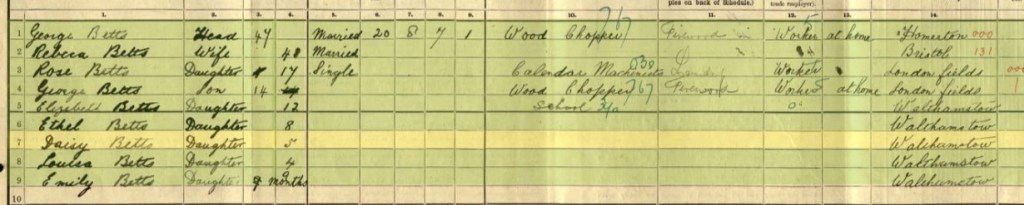 ples on back of Schedule.) trade employer).
1. 2. 3. 4. 5. 6. 7. 8. 9. 10. 11. 12. 13. 14.
1 George Betts Head 47 Married 20 8 7 1 Wood Chopper 767 Firewood Worker 5 at home Homerton 000
2 Rebeca Betts Wife 48 Married Bristol 131
3 Rose Betts Daughter 17 Single Calendar Machinists 030 Worker London fields 000
4 George Betts Son 14 Wood Chopper 767 Firewood Worker at home London fields
5 Elizabeth Betts Daughter 12 School Walthamstow
6 Ethel Betts Daughter 8 Walthamstow
7 Daisy Betts Daughter 5 Walthamstow
8 Louisa Betts Daughter 4 Walthamstow
9 Emily Betts Daughter 9 months Walthamstow
10